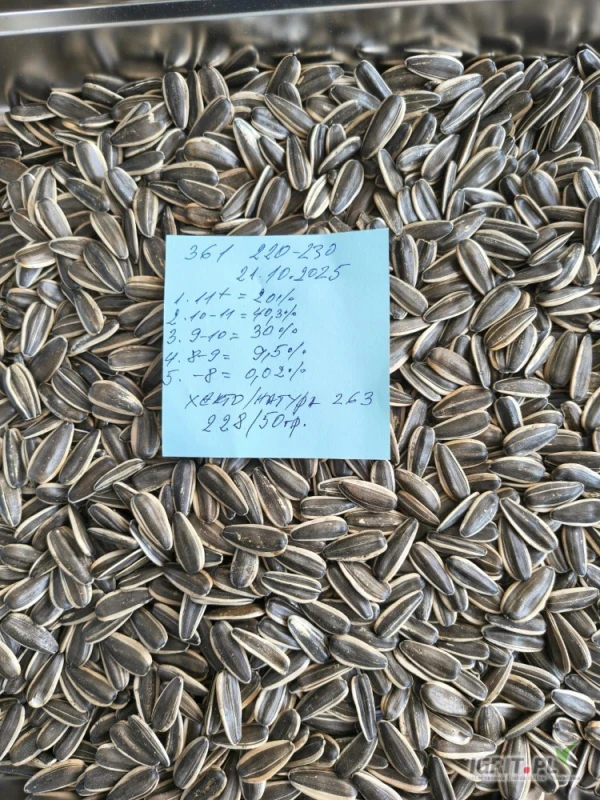 361 220-230
21.10.2025
1. 11+ = 20%
2. 10-11 = 40,3%
3. 9-10 = 30%
4. 8-9 = 9,5%
5. -8 = 0,02%
ХЕКТО/НАТУРА 263
228/50гр.
IGRIT.PL